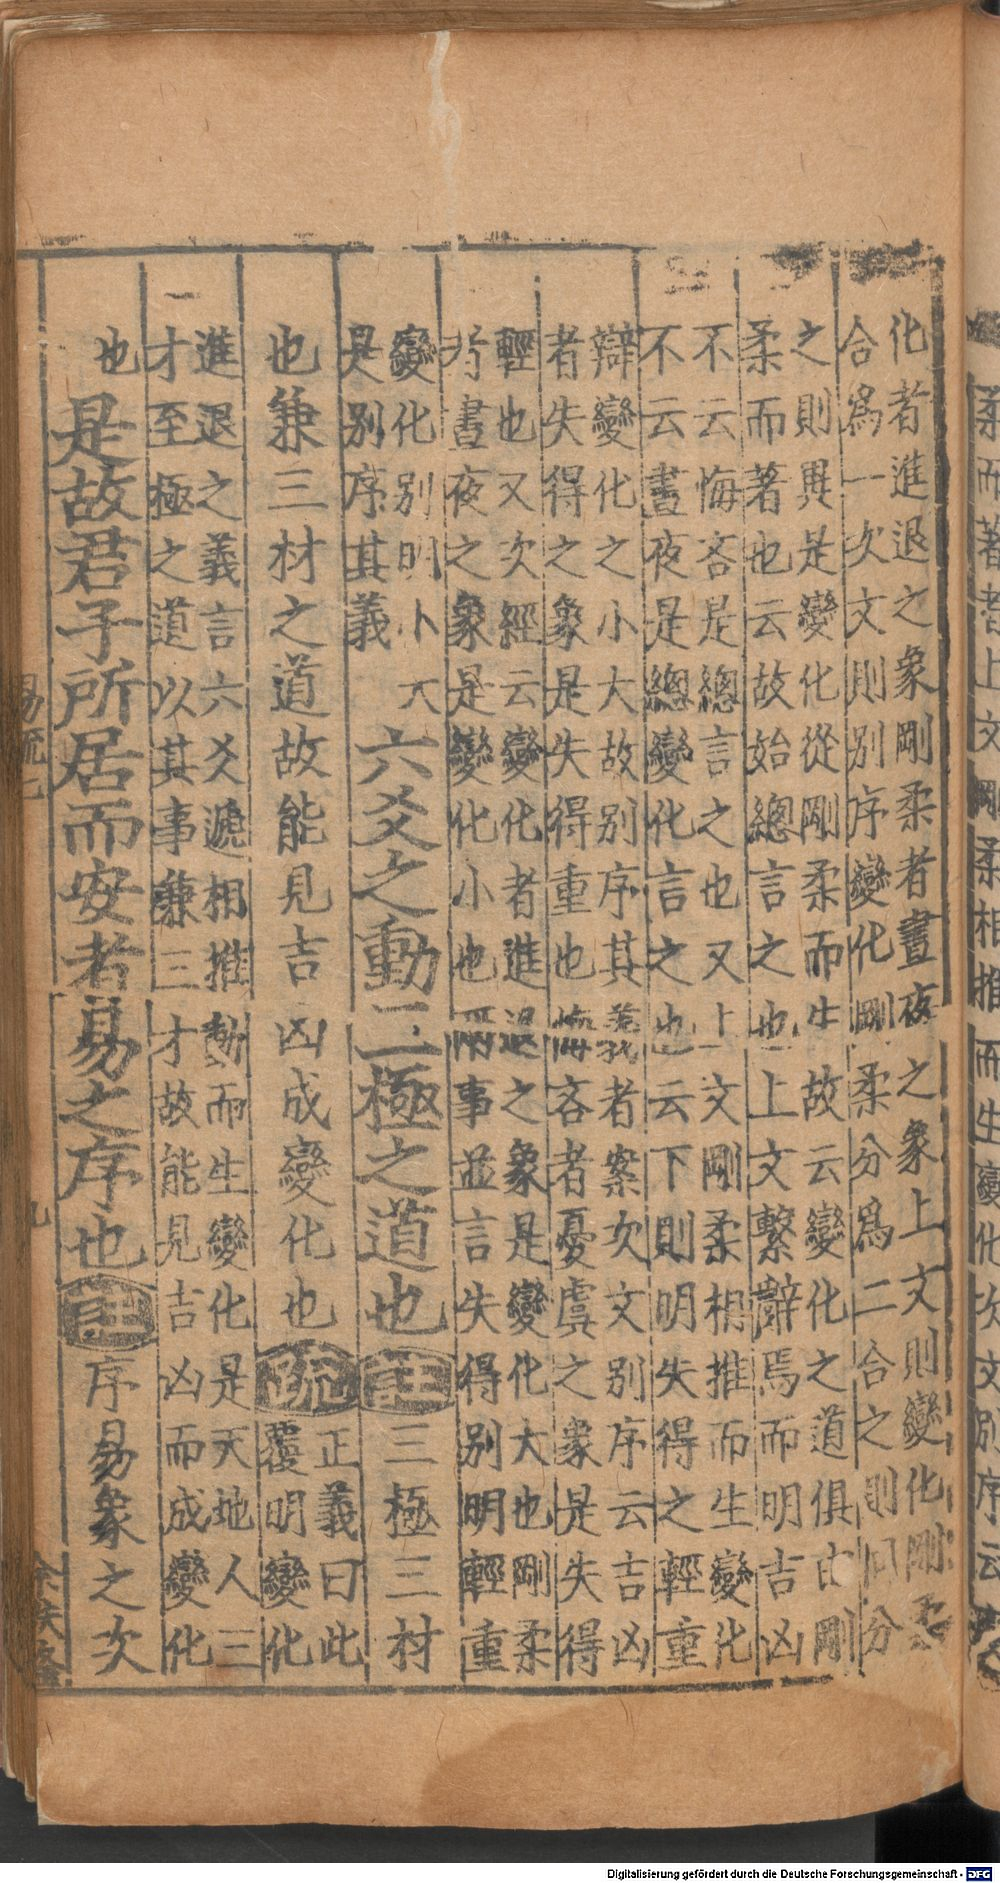 化者進退之象剛柔者晝夜之象上文則變化剛柔
合爲一次文則別序變化剛柔分爲二合之則同分
之則異是變化從剛柔而生故云變化之道俱由剛
柔而著也云故始總言之也上文繫辭焉而明吉凶
不云悔吝是總言之也又上文剛柔相推而生變化
不云晝夜是總變化言之也云下則明失得之輕重
辯變化之小大故別序其義者案次文別序云吉凶
者失得之象是失得重也悔吝者憂虞之象是失得
輕也又次經云變化者進退之象是變化大也剛柔
者晝夜之象是變化小也兩事並言失得別明輕重
變化別明小大
是別序其義
六爻之動三極之道也
註
三極三材
也兼三材之道故能見吉凶成變化也
疏
正義曰此
覆明變化
進退之義言六爻遞相推動而生變化是天地人三
才至極之道以其事兼三才故能見吉凶而成變化
也
是故君子所居而安者易之序也
註
序易象之次
易疏七
九
柔而著者上文剛柔相推而生變化次文別序云
Digitalisierung gefördert durch die Deutsche Forschungsgemeinschaft - DFG